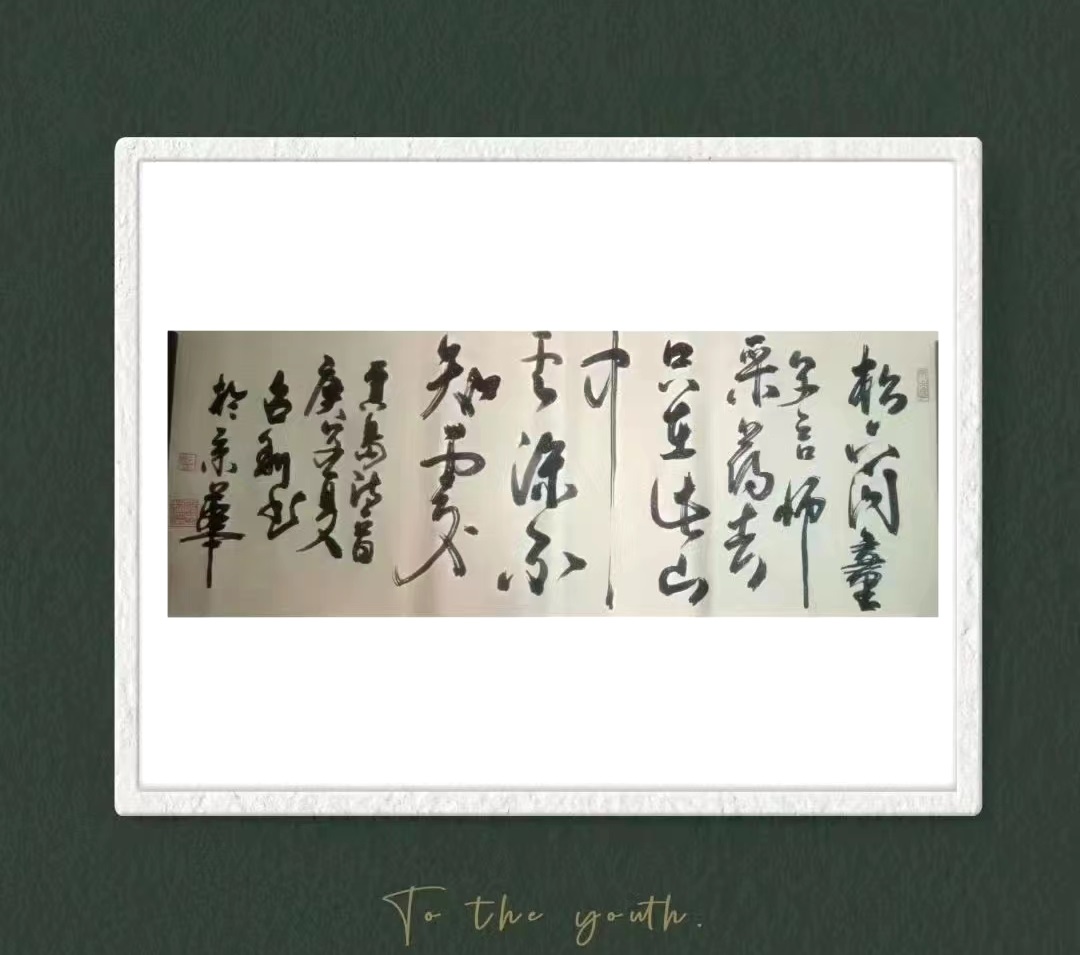 松下问童
子言师
采药去
只在此山
中
云深不
知处
贾岛诗首
庚子夏
书
於京華
To the youth.